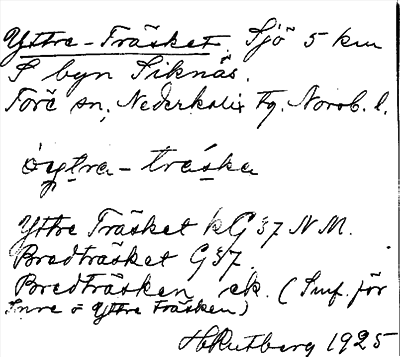 Yttre-Träsket. Sjö 5 km
S byn Siknäs.
Töre sn, Nederkalix Fg. Norrb. l.
öytra-tráska
Yttre Träsket kG 37 N M.
Bredträsket G37.
Bredträsken ek. (Smf. för
Inre o Yttre Träsken)
HRutberg 1925